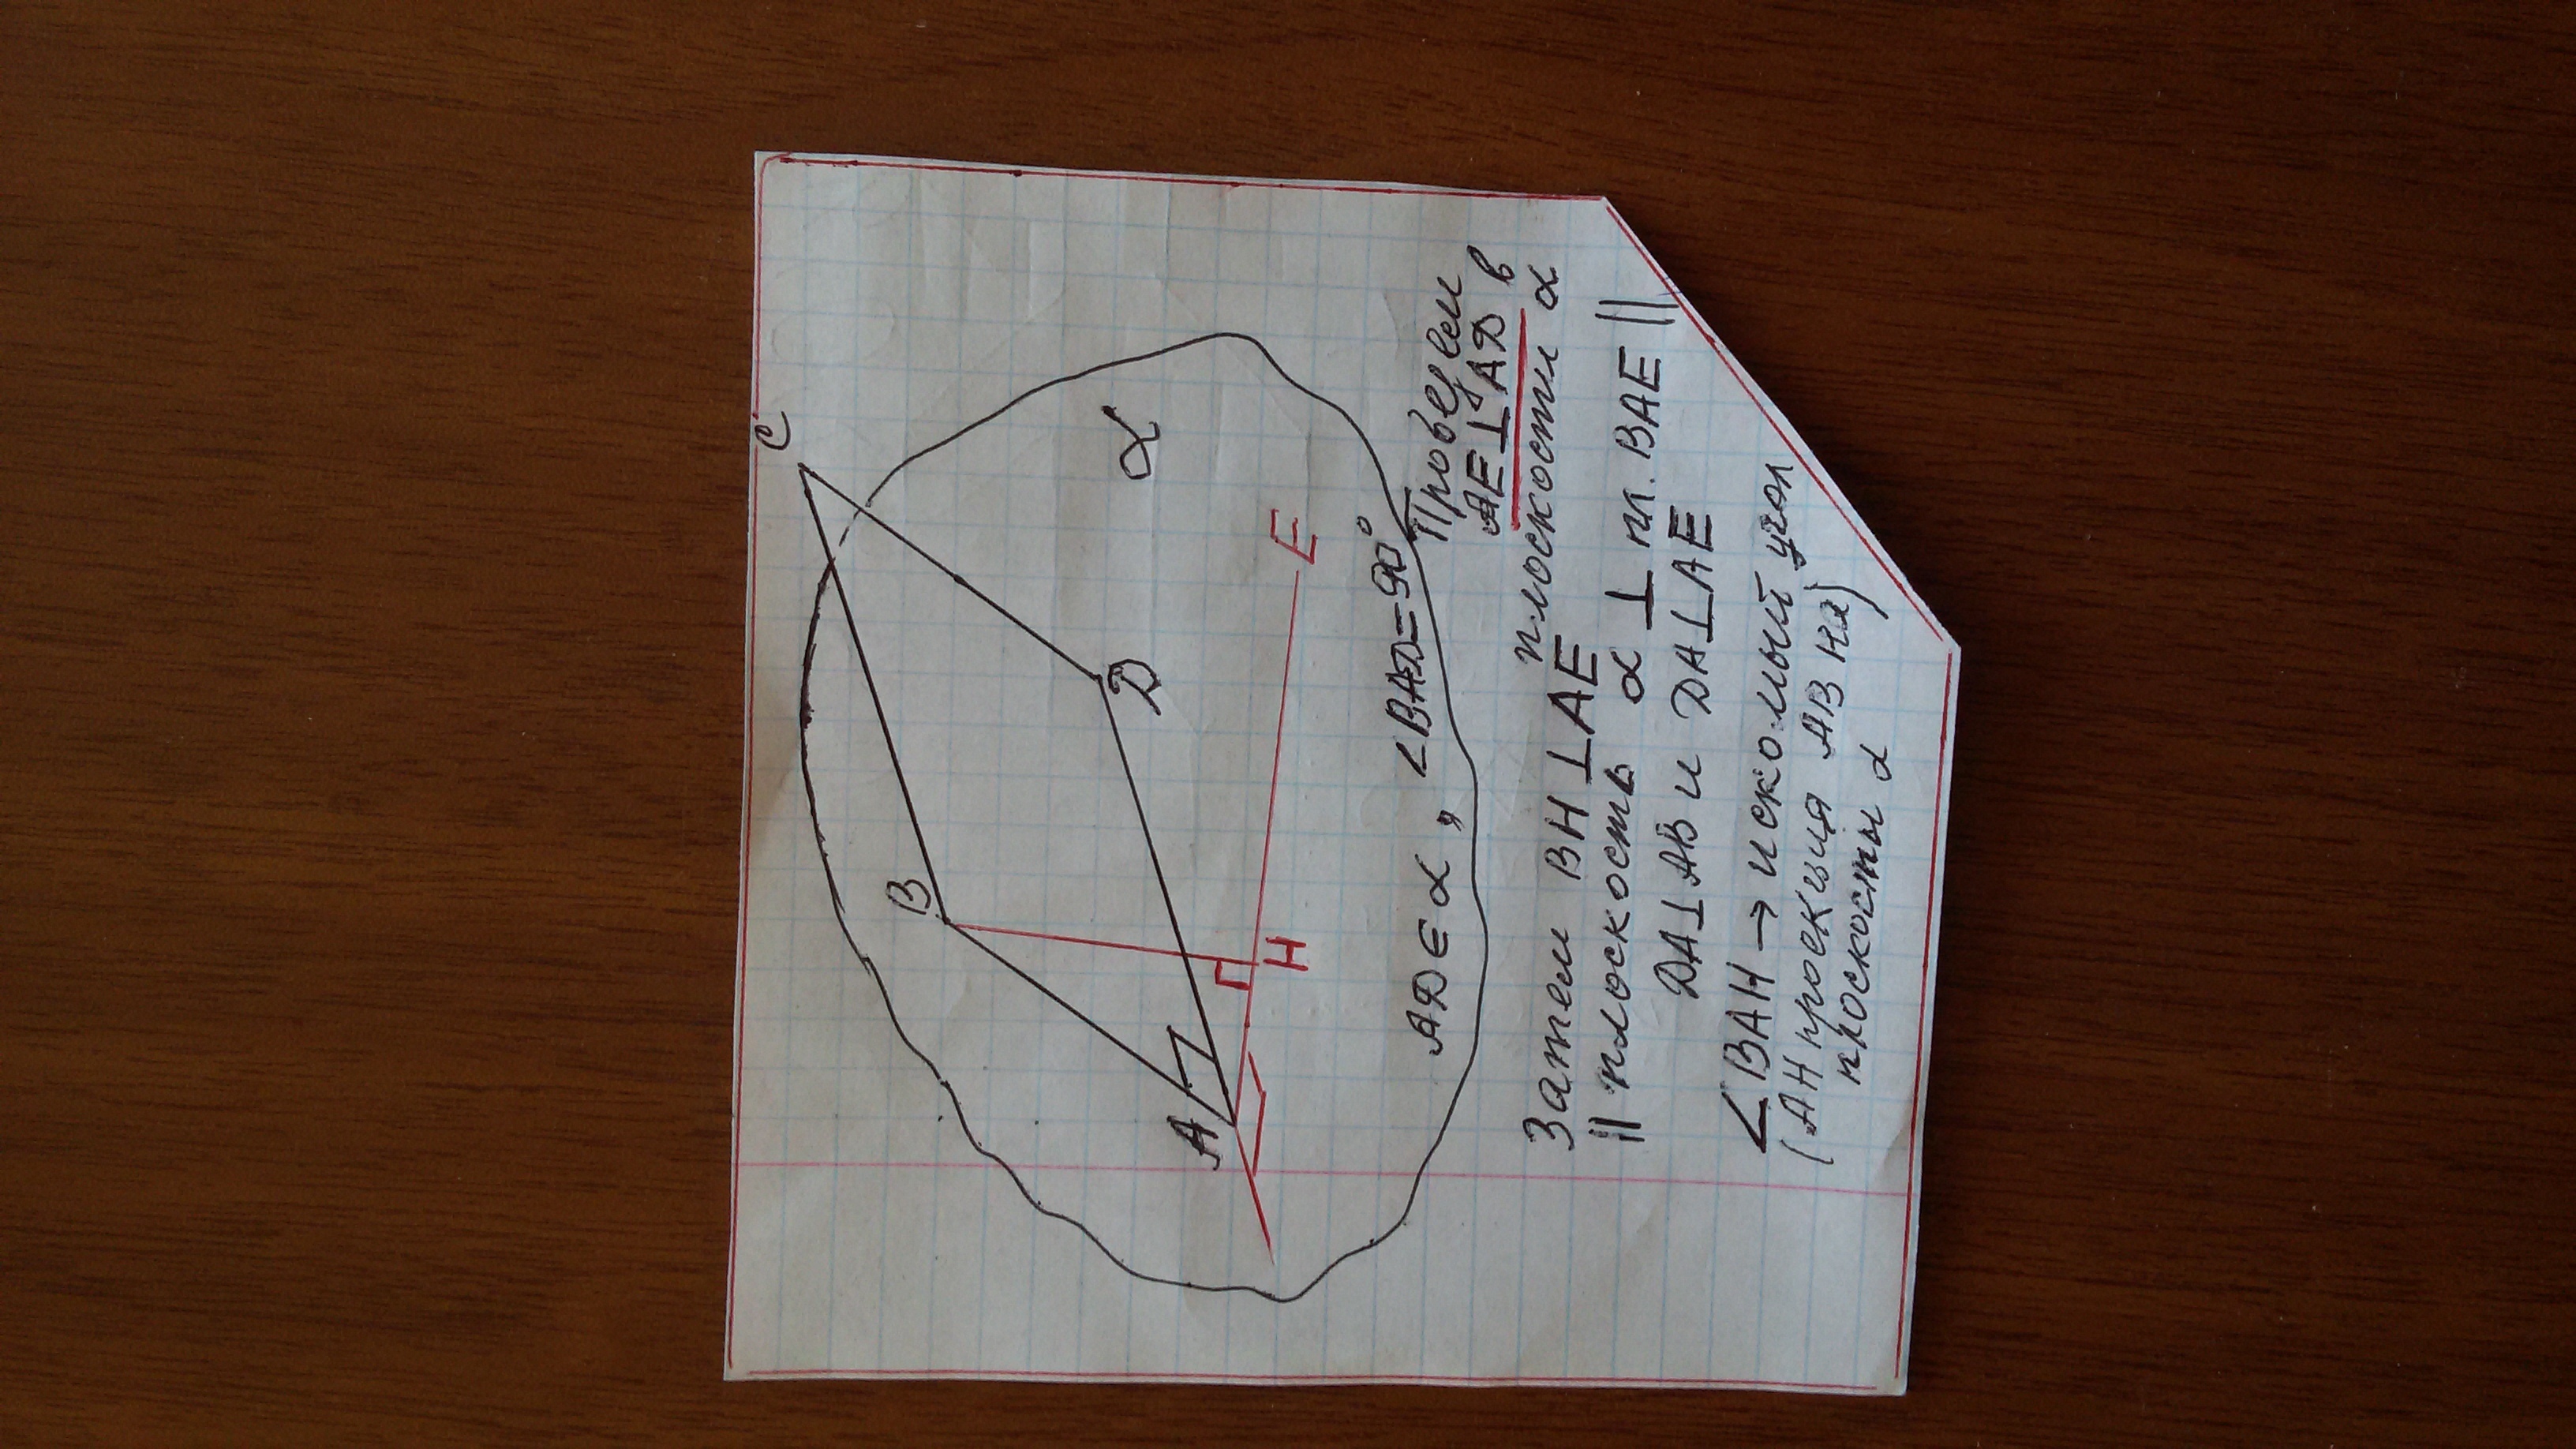 C
B
α
D
A
H
E
AD ∈ α, ∠BAD = 90°
Проведем
AE ⊥ AD в
плоскости α
Затем BH ⊥ AE
|| плоскость α ⊥ пл. BAE ||
DA ⊥ AB и DA ⊥ AE
∠BAH → искомый угол
(AH проекция AB на)
плоскоты α